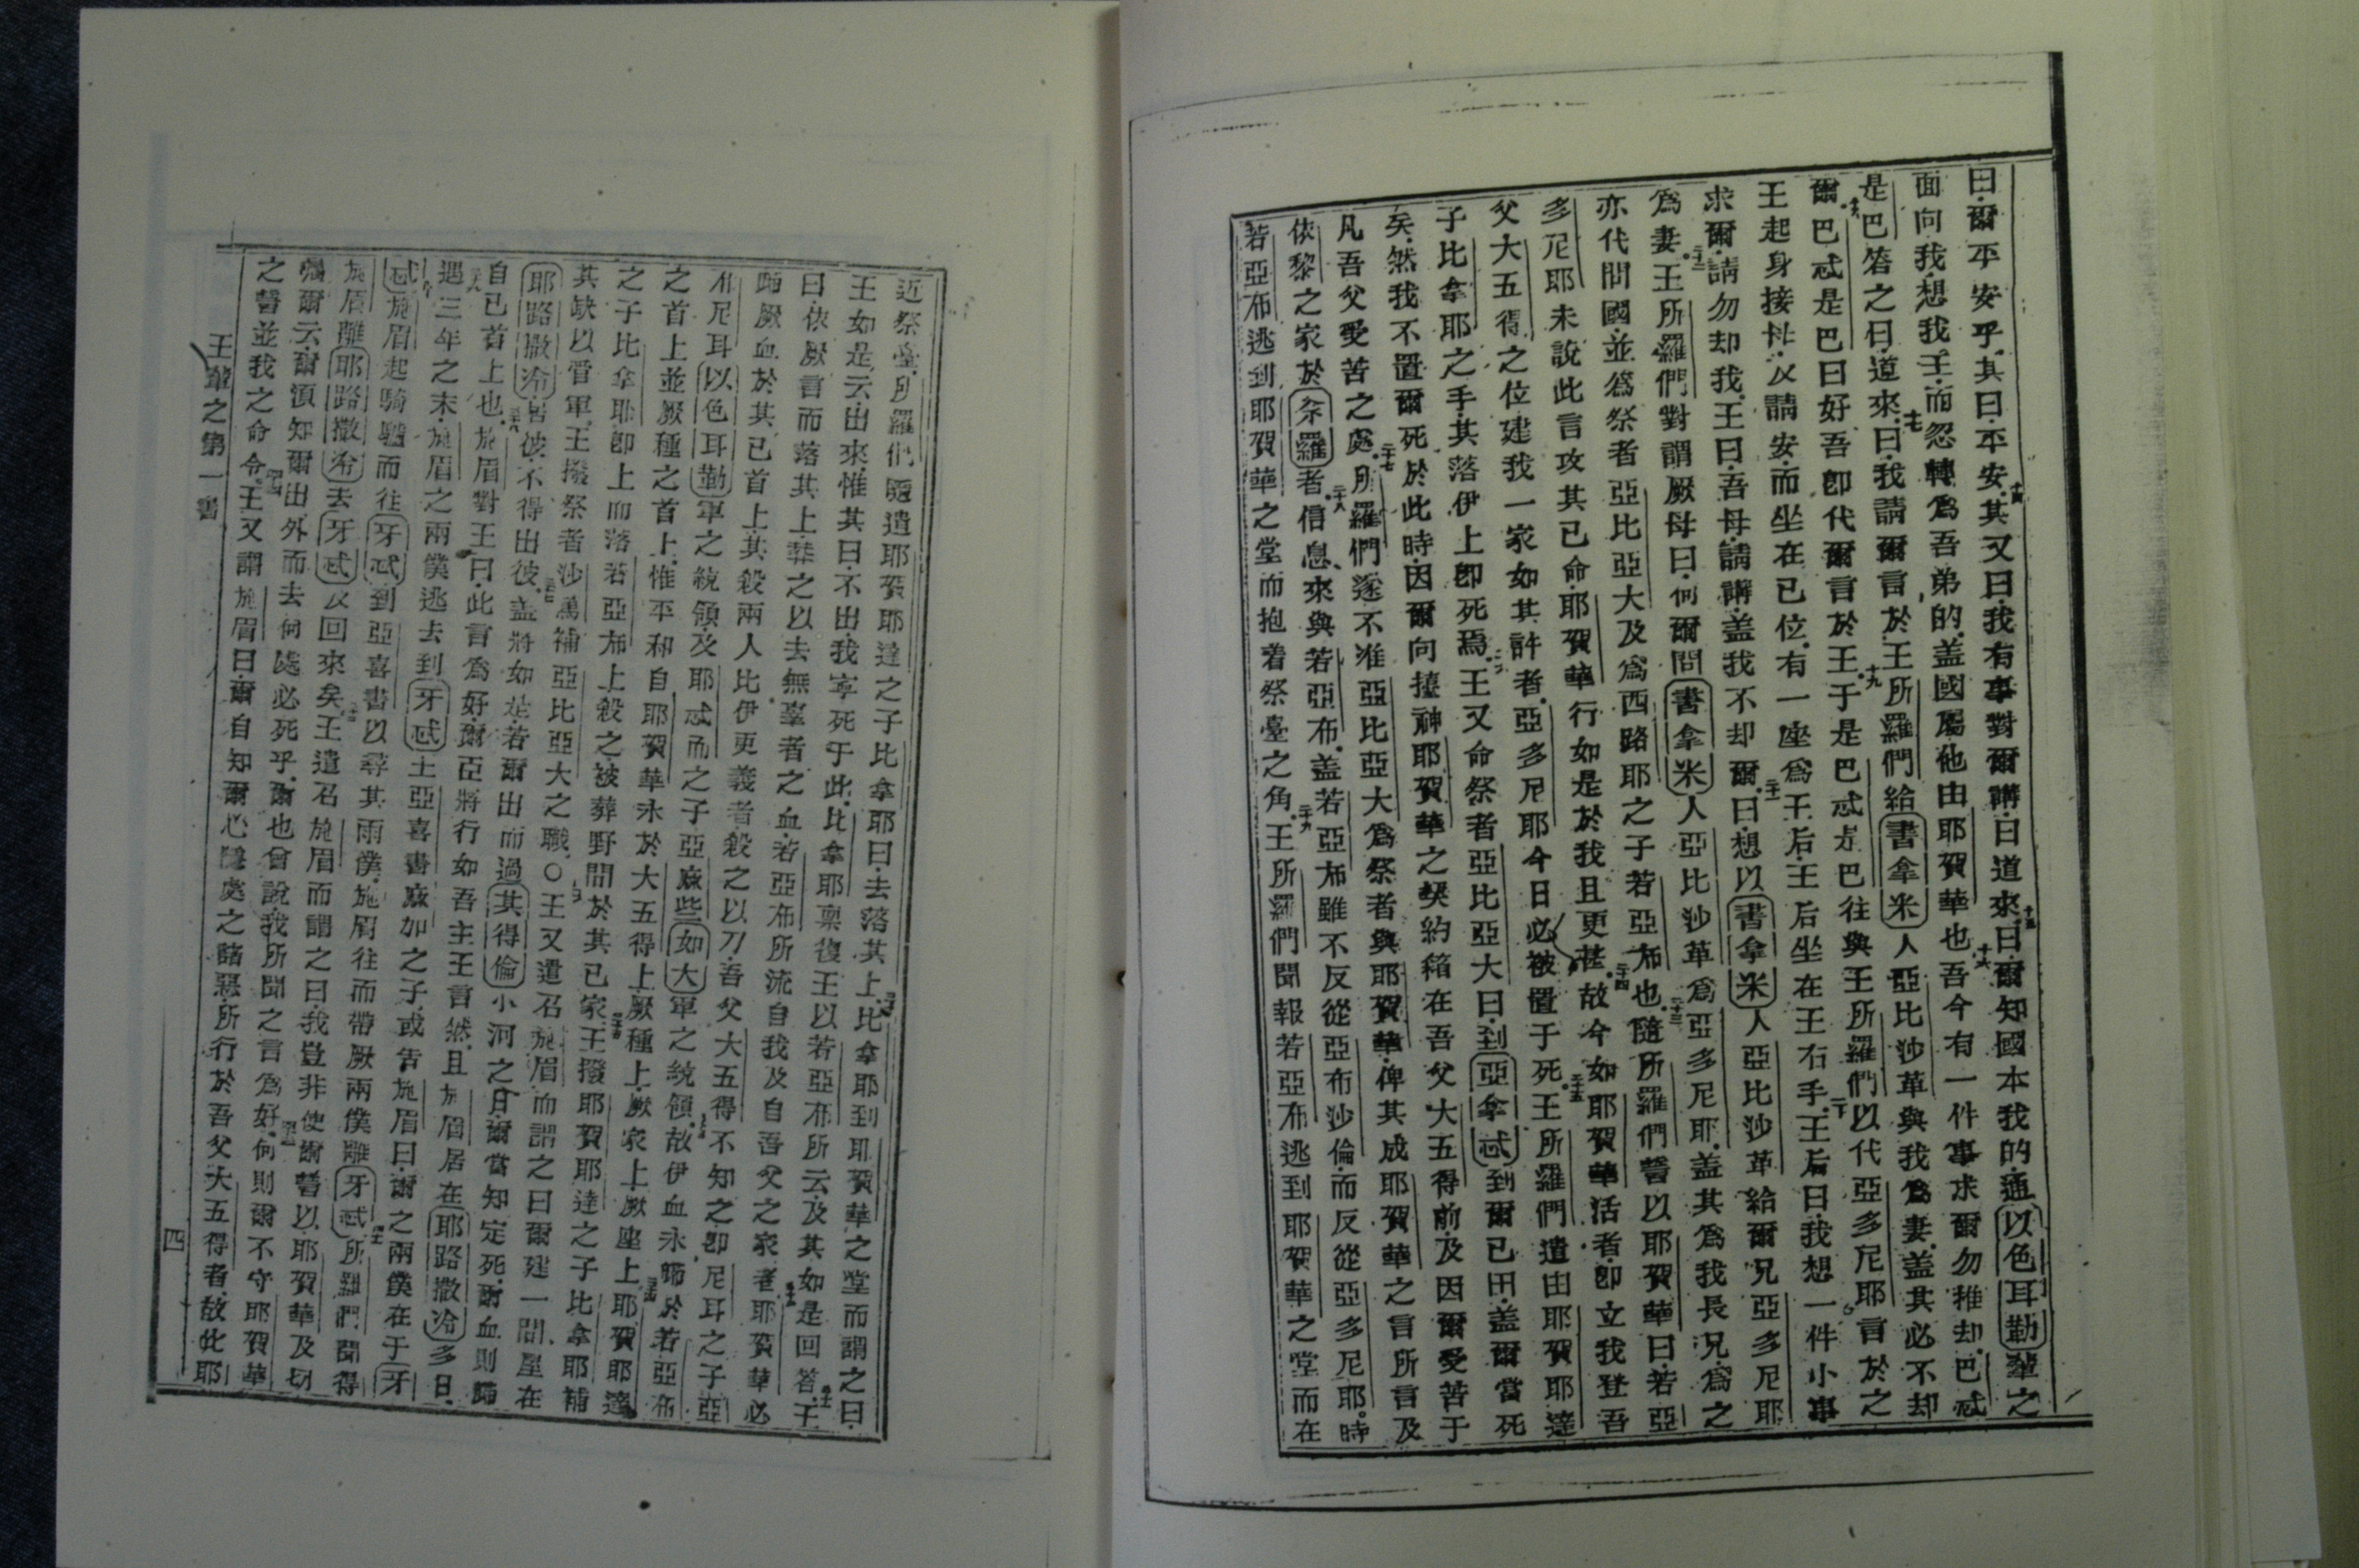 曰爾平安乎其曰平安其又曰我有事對爾講曰道來曰爾知國本我的通以色耳勒輩之
面向我想我王而忽轉爲吾弟的盖國屬他由耶賀華也吾今有一件事求爾勿推却巴忒
是巴答之曰道來曰我請爾言於王所羅們給書拿米人亞比沙革與我爲妻盖其必不却
爾巴忒是巴曰好吾卽代爾言於王于是巴忒是巴往與王所羅們以代亞多尼耶言於之
王起身接母及請安而坐在已位有一座爲王后王后坐在王右手王后曰我想一件小事
求爾請勿却我王曰吾母請講盖我不却爾曰想以書拿米人亞比沙革給爾兄亞多尼耶
爲妻王所羅們對謂厥母曰何爾問書拿米人亞比沙革爲亞多尼耶盖其爲我長兄爲之
亦代問國並爲祭者亞比亞大及爲西路耶之子若亞布也隨所羅們誓以耶賀華曰若亞
多尼耶未說此言攻其已命耶賀華行如是於我且更甚故今如耶賀華活者卽立我登吾
父大五得之位建我一家如其許者亞多尼耶今日必被置于死王所羅們遣由耶賀耶達
子比拿耶之手其落伊上卽死焉王又命祭者亞比亞大曰到亞拿忒到爾已田盖爾當死
矣然我不置爾死於此時因爾向擡神耶賀華之契約箱在吾父大五得前及因爾受苦于
凡吾父受苦之處所羅們遂不准亞比亞大爲祭者與耶賀華俾其成耶賀華之言所言及
依黎之家於尒羅者信息來與若亞布盖若亞布雖不反從亞布沙倫而反從亞多尼耶時
若亞布逃到耶賀華之堂而抱着祭臺之角王所羅們聞報若亞布逃到耶賀華之堂而在
近祭臺所羅們隨遣耶賀耶達之子比拿耶曰去落其上比拿耶到耶賀華之堂而謂之曰
王如是云出來惟其曰不出我寧死于此比拿耶稟復王以若亞布所云及其如是回答王
曰依厥言而落其上葬之以去無辜者之血若亞布所流自我及自吾父之家者耶賀華必
歸厥血於其已首上其殺兩人比伊更義者殺之以刀吾父大五得不知之卽尼耳之子亞
布尼耳以色耳勒軍之統領及耶忒而之子亞麻些如大軍之統領故伊血永歸於若亞布
之首上並厥種之首上惟平和自耶賀華永於大五得上厥種上厥家上厥座上耶賀耶達
之子比拿耶卽上而落若亞布上殺之被葬野間於其已家王撥耶賀耶達之子比拿耶補
其缺以管軍王撥祭者沙篤補亞比亞大之職〇王又遣召施眉而謂之曰爾建一間屋在
耶路撒冷居彼不得出彼盖將如是若爾出而過其得倫小河之日爾當知定死爾血則歸
自已首上也施眉對王曰此言爲好爾臣將行如吾主王言然且施眉居在耶路撒冷多日
遇三年之末施眉之兩僕逃去到牙忒王亞喜書麻加之子或告施眉曰爾之兩僕在于牙
忒施眉起騎驢而往牙忒到亞喜書以尋其兩僕施眉往而帶厥兩僕離牙忒所羅們聞得
施眉離耶路撒冷去牙忒及回來矣王遣召施眉而謂之曰我豈非使爾誓以耶賀華及切
囑爾云爾須知爾出外而去何處必死乎爾也曾說我所聞之言爲好何則爾不守耶賀華
之誓並我之命令王又謂施眉曰爾自知爾心隱處之諸惡所行於吾父大五得者故此耶
王輩之第一書
四